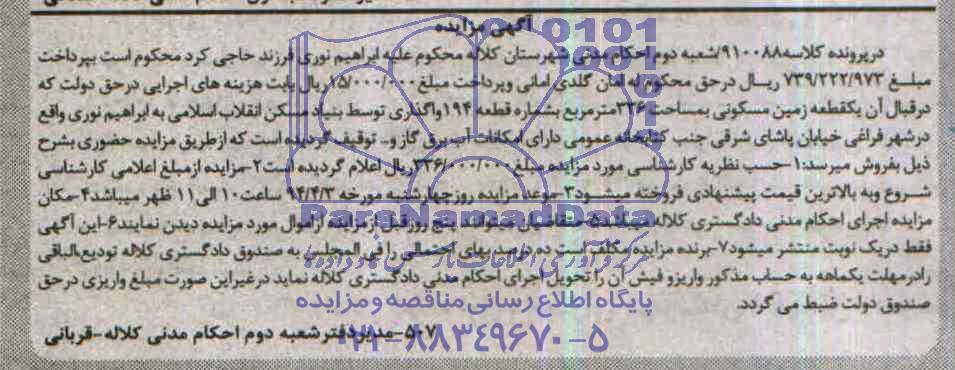 آگهی مزایده
در پرونده کلاسه ۹۱۰۰۸۸/شعبه دوم احکام مدنی شهرستان کلاله محکوم علیه ابراهیم نوری فرزند حاجی کرد محکوم است بپرداخت
مبلغ ۷۳۹/۲۲۲/۹۷۳ ریال در حق محکوم له امان گلدی امانی و پرداخت مبلغ ۱۵/۰۰۰/۰۰۰ ریال بابت هزینه های اجرایی در حق دولت که
در قبال آن یکقطعه زمین مسکونی بمساحت ۳۳۶ مترمربع بشماره قطعه ۱۹۴ واگذاری توسط بنیاد مسکن انقلاب اسلامی به ابراهیم نوری واقع
در شهر فراغی خیابان پاشای شرقی جنب کتابخانه عمومی دارای امکانات آب برق گاز و.. توقیف گردیده است که از طریق مزایده حضوری بشرح
ذیل بفروش میرسد:۱-حسب نظریه کارشناسی مورد مزایده مبلغ ۳۳۶/۰۰۰/۰۰۰ ریال اعلام گردیده است ۲-مزایده از مبلغ اعلامی کارشناسی
شروع وبه بالاترین قیمت پیشنهادی فروخته میشود ۳-موعد مزایده روز چهارشنبه مورخه ۹۴/۴/۳ ساعت ۱۰ الی ۱۱ ظهر میباشد ۴-مکان
مزایده اجرای احکام مدنی دادگستری کلاله میباشد ۵-متقاضیان میتوانند پنج روز قبل از مزایده از اموال مورد مزایده دیدن نمایند ۶-این آگهی
فقط در یک نوبت منتشر میشود ۷-برنده مزایده مکلف است ده درصد بهای احتمالی را فی المجلس به صندوق دادگستری کلاله تودیع،الباقی
را در مهلت یکماهه به حساب مذکور واریز و فیش آن را تحویل اجرای احکام مدنی دادگستری کلاله نماید در غیر این صورت مبلغ واریزی در حق
صندوق دولت ضبط می گردد.
۵۰۷-مدیر دفتر شعبه دوم احکام مدنی کلاله-قربانی
ParsNamadData
پایگاه اطلاع رسانی مناقصه و مزایده
۰۲۱-۸۸۳۴۹۶۷۰-۵